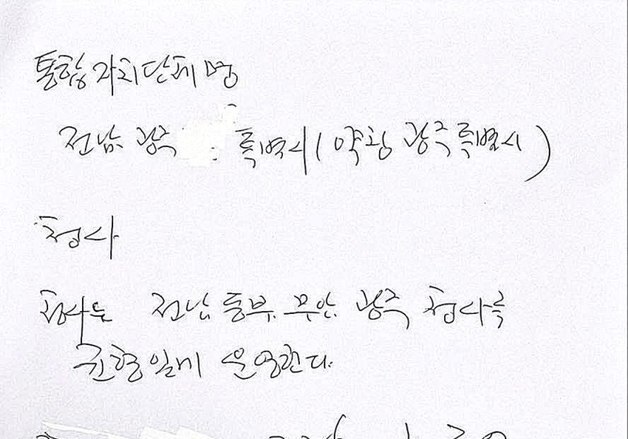 통합자치단체명
전남 광주 특별시(약칭 광주특별시)
청사
청사는 전남 동부 무안 광주 청사를
균형있게 운영한다.